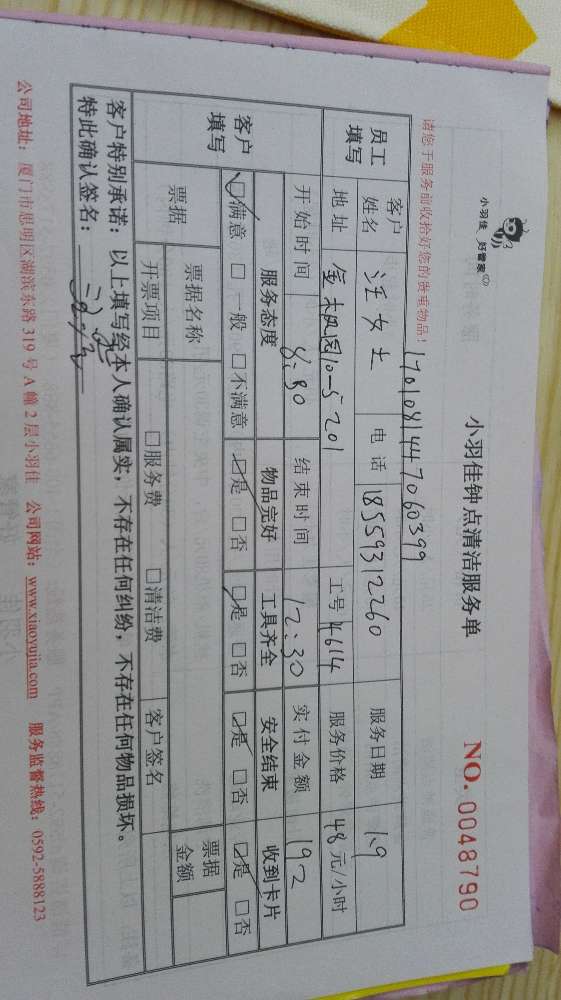 小羽佳 好管家
小羽佳钟点清洁服务单
NO. 0048790
请您于服务前收拾好您的贵重物品！
170108144706 0399
员工填写 客户姓名 汪女士 电话 18559312260 服务日期 1.9
地址 金枫园10-5 201 工号 4614 服务价格 48元/小时
开始时间 8:30 结束时间 12:30 实付金额 192
客户填写 服务态度 物品完好 工具齐全 安全结束 收到卡片
☑满意 □一般 □不满意 ☑是 □否 ☑是 □否 ☑是 □否 ☑是 □否
票据 票据名称 票据金额
开票项目 □服务费 □清洁费 客户签名
客户特别承诺：以上填写经本人确认属实，不存在任何纠纷，不存在任何物品损坏。
特此确认签名：
公司地址：厦门市思明区湖滨东路 319 号 A 幢 2 层小羽佳 公司网站：www.xiaoyujia.com 服务监督热线：0592-5888123